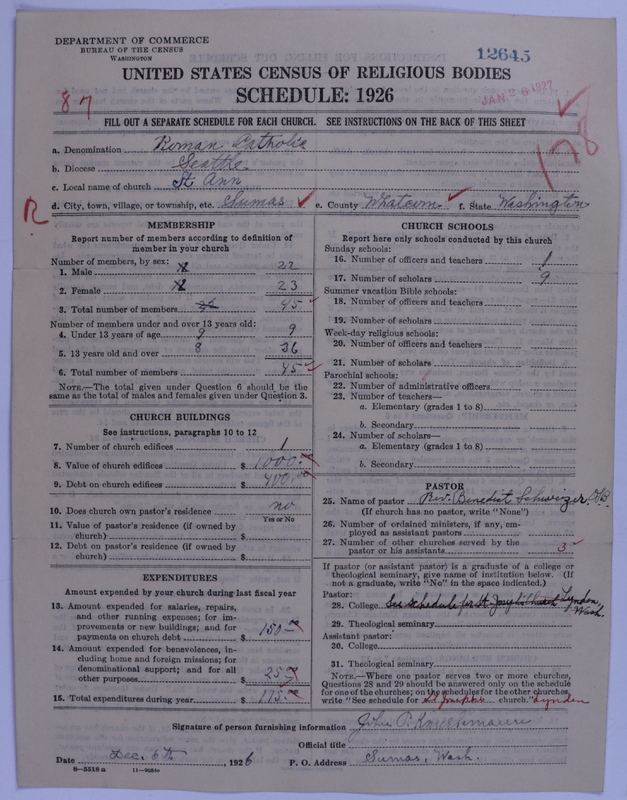 DEPARTMENT OF COMMERCE
BUREAU OF THE CENSUS
WASHINGTON
12645
UNITED STATES CENSUS OF RELIGIOUS BODIES
SCHEDULE: 1926
JAN 26 1927
8-7
178
FILL OUT A SEPARATE SCHEDULE FOR EACH CHURCH. SEE INSTRUCTIONS ON THE BACK OF THIS SHEET
a. Denomination Roman Catholic
b. Diocese Seattle
c. Local name of church St Ann
R
d. City, town, village, or township, etc. Sumas e. County Whatcom f. State Washington
MEMBERSHIP
Report number of members according to definition of
member in your church
Number of members, by sex:
1. Male 22
2. Female 23
3. Total number of members 45
Number of members under and over 13 years old:
4. Under 13 years of age 9 9
5. 13 years old and over 8 36
6. Total number of members 45
NOTE.—The total given under Question 6 should be the
same as the total of males and females given under Question 3.
CHURCH BUILDINGS
See instructions, paragraphs 10 to 12
7. Number of church edifices 1
8. Value of church edifices $ 1000.00
9. Debt on church edifices $ 400.00
10. Does church own pastor's residence no
Yes or No
11. Value of pastor's residence (if owned by
church) $
12. Debt on pastor's residence (if owned by
church) $
EXPENDITURES
Amount expended by your church during last fiscal year
13. Amount expended for salaries, repairs,
and other running expenses; for im-
provements or new buildings; and for
payments on church debt $ 150.00
14. Amount expended for benevolences, in-
cluding home and foreign missions; for
denominational support; and for all
other purposes $ 25.00
15. Total expenditures during year $ 175.00
CHURCH SCHOOLS
Report here only schools conducted by this church
Sunday schools:
16. Number of officers and teachers 1
17. Number of scholars 9
Summer vacation Bible schools:
18. Number of officers and teachers
19. Number of scholars
Week-day religious schools:
20. Number of officers and teachers
21. Number of scholars
Parochial schools:
22. Number of administrative officers
23. Number of teachers—
a. Elementary (grades 1 to 8)
b. Secondary
24. Number of scholars—
a. Elementary (grades 1 to 8)
b. Secondary
PASTOR
25. Name of pastor Rev. Benedict Schweizer
(If church has no pastor, write "None")
26. Number of ordained ministers, if any, em-
ployed as assistant pastors
27. Number of other churches served by the
pastor or his assistants 3
If pastor (or assistant pastor) is a graduate of a college or
theological seminary, give name of institution below. (If
not a graduate, write "No" in the space indicated.)
Pastor:
28. College See schedule for St. Joseph's Church Lynden
Wash.
29. Theological seminary
Assistant pastor:
30. College
31. Theological seminary
NOTE.—Where one pastor serves two or more churches,
Questions 28 and 29 should be answered only on the schedule
for one of the churches; on the schedules for the other churches,
write "See schedule for St. Joseph's church." Lynden
Signature of person furnishing information John P.
Official title
Date Dec. 6th, 1926 P. O. Address Sumas, Wash.
8—5518 a 11—9284